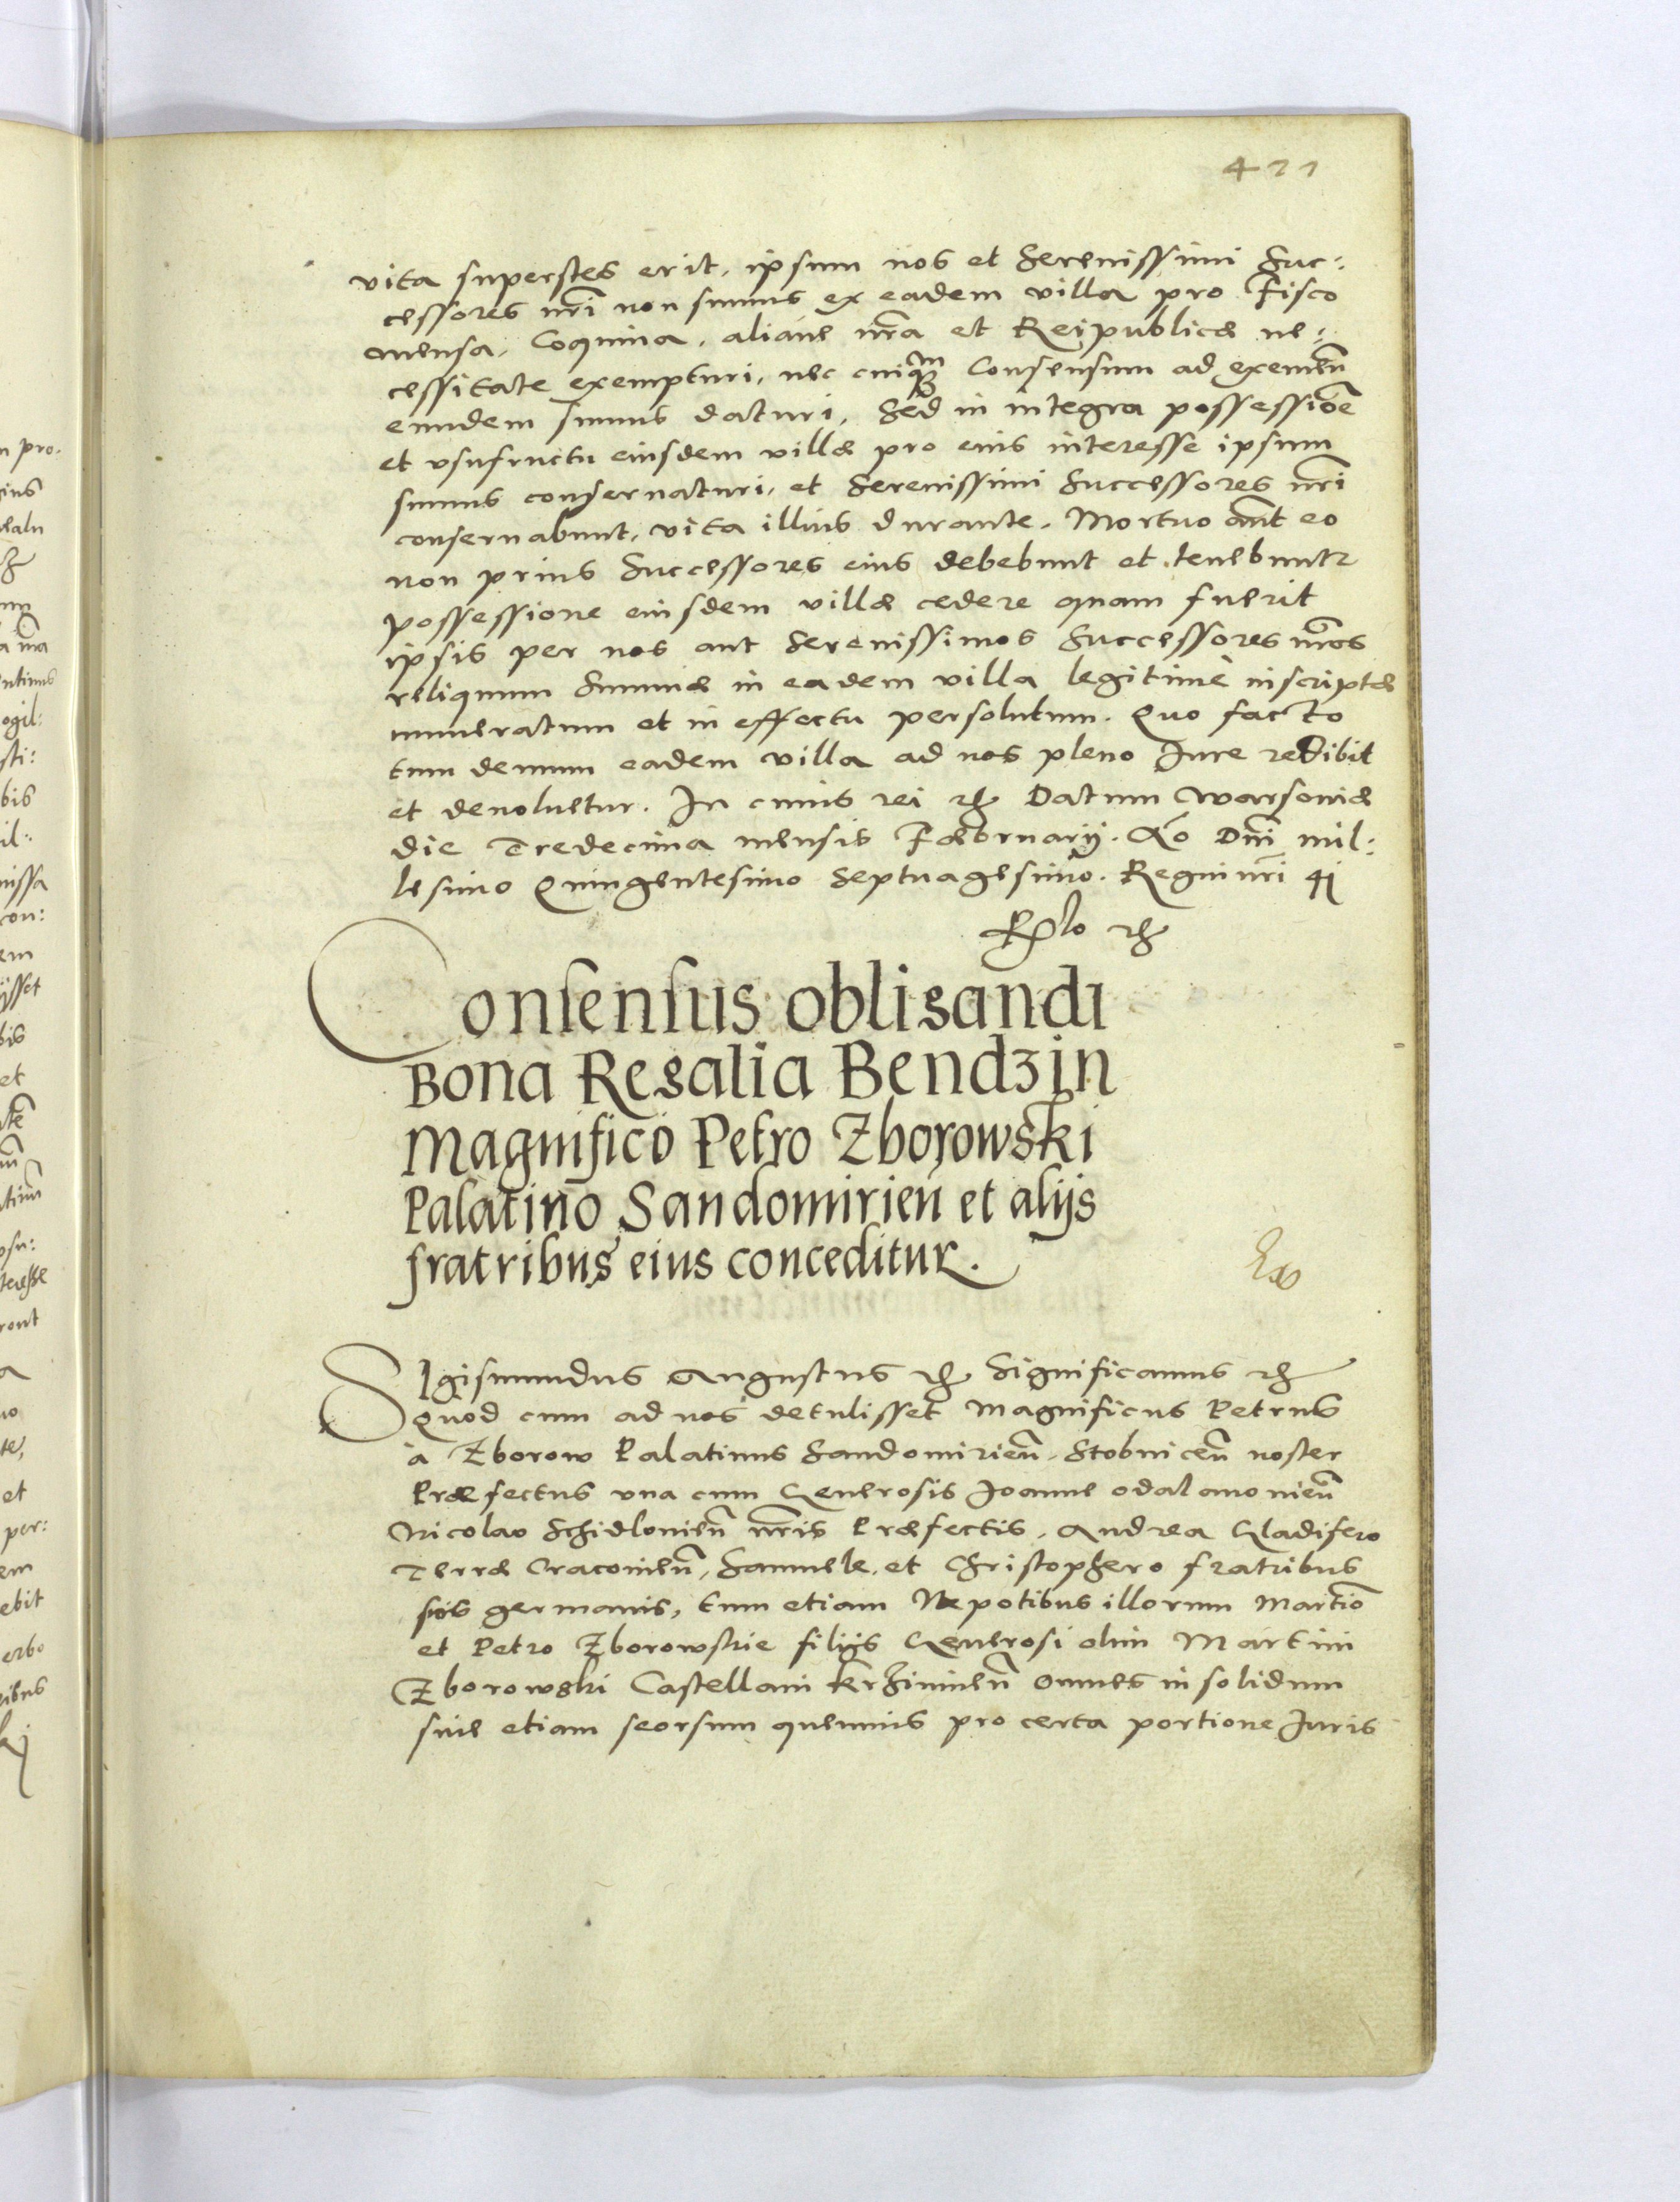 421
vita superstes erit, ipsum nos et Serenissimi Suc:
cessores nr̃i non sumus ex eadem villa pro Fisco
mensa, Coquina, aliaue nr̃a et Reipublicæ ne:
cessitate exempturi, nec cuiq̃m Consensum ad exemeñ
eundem sumus daturi, Sed in integra possessiõe
et vsufructu eiusdem villæ pro eius interesse ipsum
sumus conseruaturi, et Serenissimi Successores nr̃i
conseruabunt, vita illius durante. Mortuo aũt eo
non prius Successores eius debebunt et tenebuntr
possessione eiusdem villæ cedere quam fuerit
ipsis per nos aut Serenissimos Successores nr̃os
reliquum Summæ in eadem villa legitimè inscriptæ
numeratum et in effectu persolutum. Quo facto
tum demum eadem villa ad nos pleno Jure redibit
et deuoluetur. In cuius rei etc Datum Warsouiæ
die Tredecima mensis Fæbruarij. Ao Dñi mil:
lesimo Quingentesimo Septuagesimo. Regni nr̃i 41
Rel̃o etc
Consensus obligandi
Bona Regalia Bendzin
Magnifico Petro Zborowski
Palatino Sandomirień et alijs
fratribus eius conceditur.
Sigismundus Augustus etc Significamus etc
Quod cum ad nos detulisset Magnificus Petrus
à Zborow Palatinus Sandomirieñ, Stobniceñ noster
Præfectus vna cum Generosis Joanne odalanouieñ
Nicolao Schidlouieñ nr̃is Præfectis, Andrea Gladifero
Terræ Cracouieñ, Samuele, et Christophero fratribus
suis germanis, tum etiam Nepotibus illorum Martiõ
et Petro Zborowskie filijs Generosi olim Martini
Zborowski Castellani Krziuineñ omnes in solidum
siue etiam seorsum quemuis pro certa portione Juris